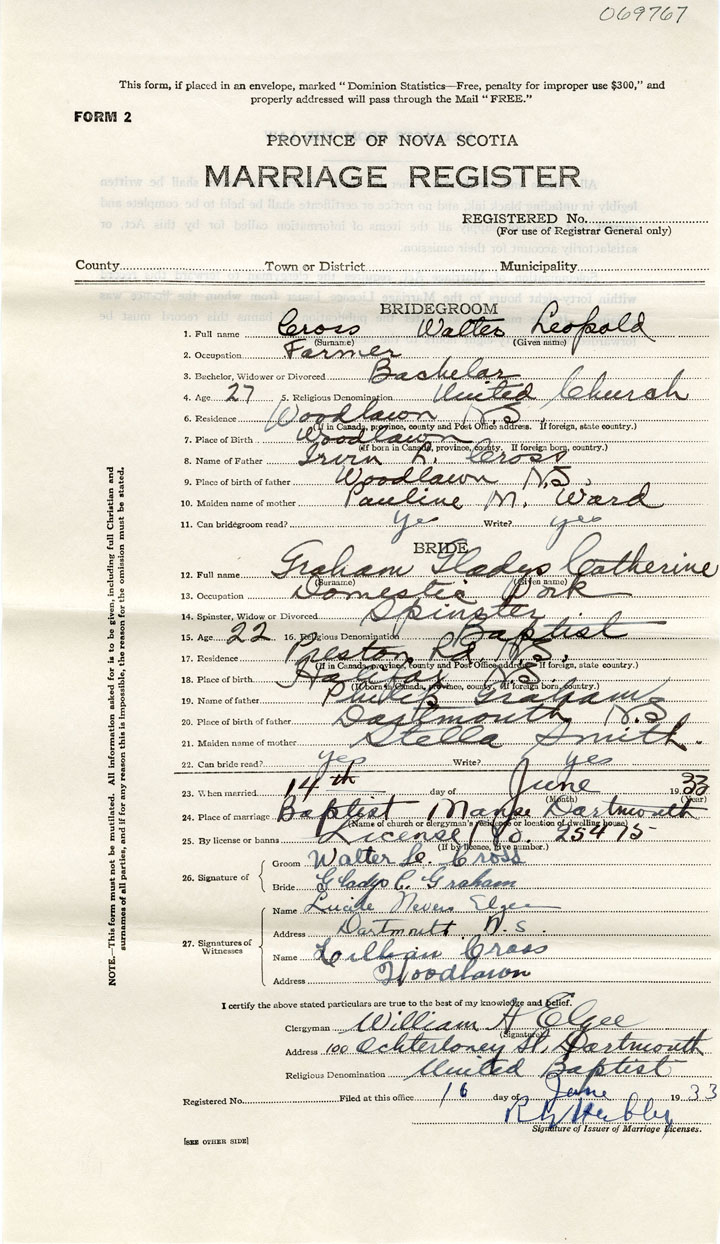 069767
This form, if placed in an envelope, marked "Dominion Statistics—Free, penalty for improper use $300," and
properly addressed will pass through the Mail "FREE."
FORM 2
PROVINCE OF NOVA SCOTIA
MARRIAGE REGISTER
REGISTERED No.
(For use of Registrar General only)
County Town or District Municipality
BRIDEGROOM
1. Full name Cross Walter Leopold
(Surname) (Given name)
2. Occupation Farmer
3. Bachelor, Widower or Divorced Bachelor
4. Age 27 5. Religious Denomination United Church
6. Residence Woodlawn N.S.
(If in Canada, province, county and Post Office address. If foreign, state country.)
7. Place of Birth Woodlawn
(If born in Canada, province, county. If foreign born, country.)
8. Name of Father Irvin L. Cross
9. Place of birth of father Woodlawn N.S.
10. Maiden name of mother Pauline M. Ward
11. Can bridegroom read? yes Write? yes
BRIDE
12. Full name Graham Gladys Catherine
(Surname) (Given name)
13. Occupation Domestic Work
14. Spinster, Widow or Divorced Spinster
15. Age 22 16. Religious Denomination Baptist
17. Residence Preston Rd. N.S.
(If in Canada, province, county and Post Office address. If foreign, state country.)
18. Place of birth Halifax N.S.
(If born in Canada, province, county, If foreign born, country.)
19. Name of father Philip Graham
20. Place of birth of father Dartmouth N.S.
21. Maiden name of mother Stella Smith.
22. Can bride read? yes Write? yes
23. When married 14th day of June 1933
(Month) (Year)
24. Place of marriage Baptist Manse Dartmouth
(Name of church or clergyman's residence or location of dwelling house)
25. By license or banns License No. 25475
(If by licence, give number.)
26. Signature of
Groom Walter L. Cross
Bride Gladys C. Graham
27. Signatures of Witnesses
Name Nevers Elgee
Address Dartmouth N.S.
Name Lillian Cross
Address Woodlawn
I certify the above stated particulars are true to the best of my knowledge and belief.
Clergyman William A Elgee
(Signature)
Address 100 Ochterloney St, Dartmouth
Religious Denomination United Baptist
Registered No. Filed at this office 16 day of June 1933
Signature of Issuer of Marriage Licenses.
[SEE OTHER SIDE]
NOTE.—This form must not be mutilated. All information asked for is to be given, including full Christian and
surnames of all parties, and if for any reason this is impossible, the reason for the omission must be stated.